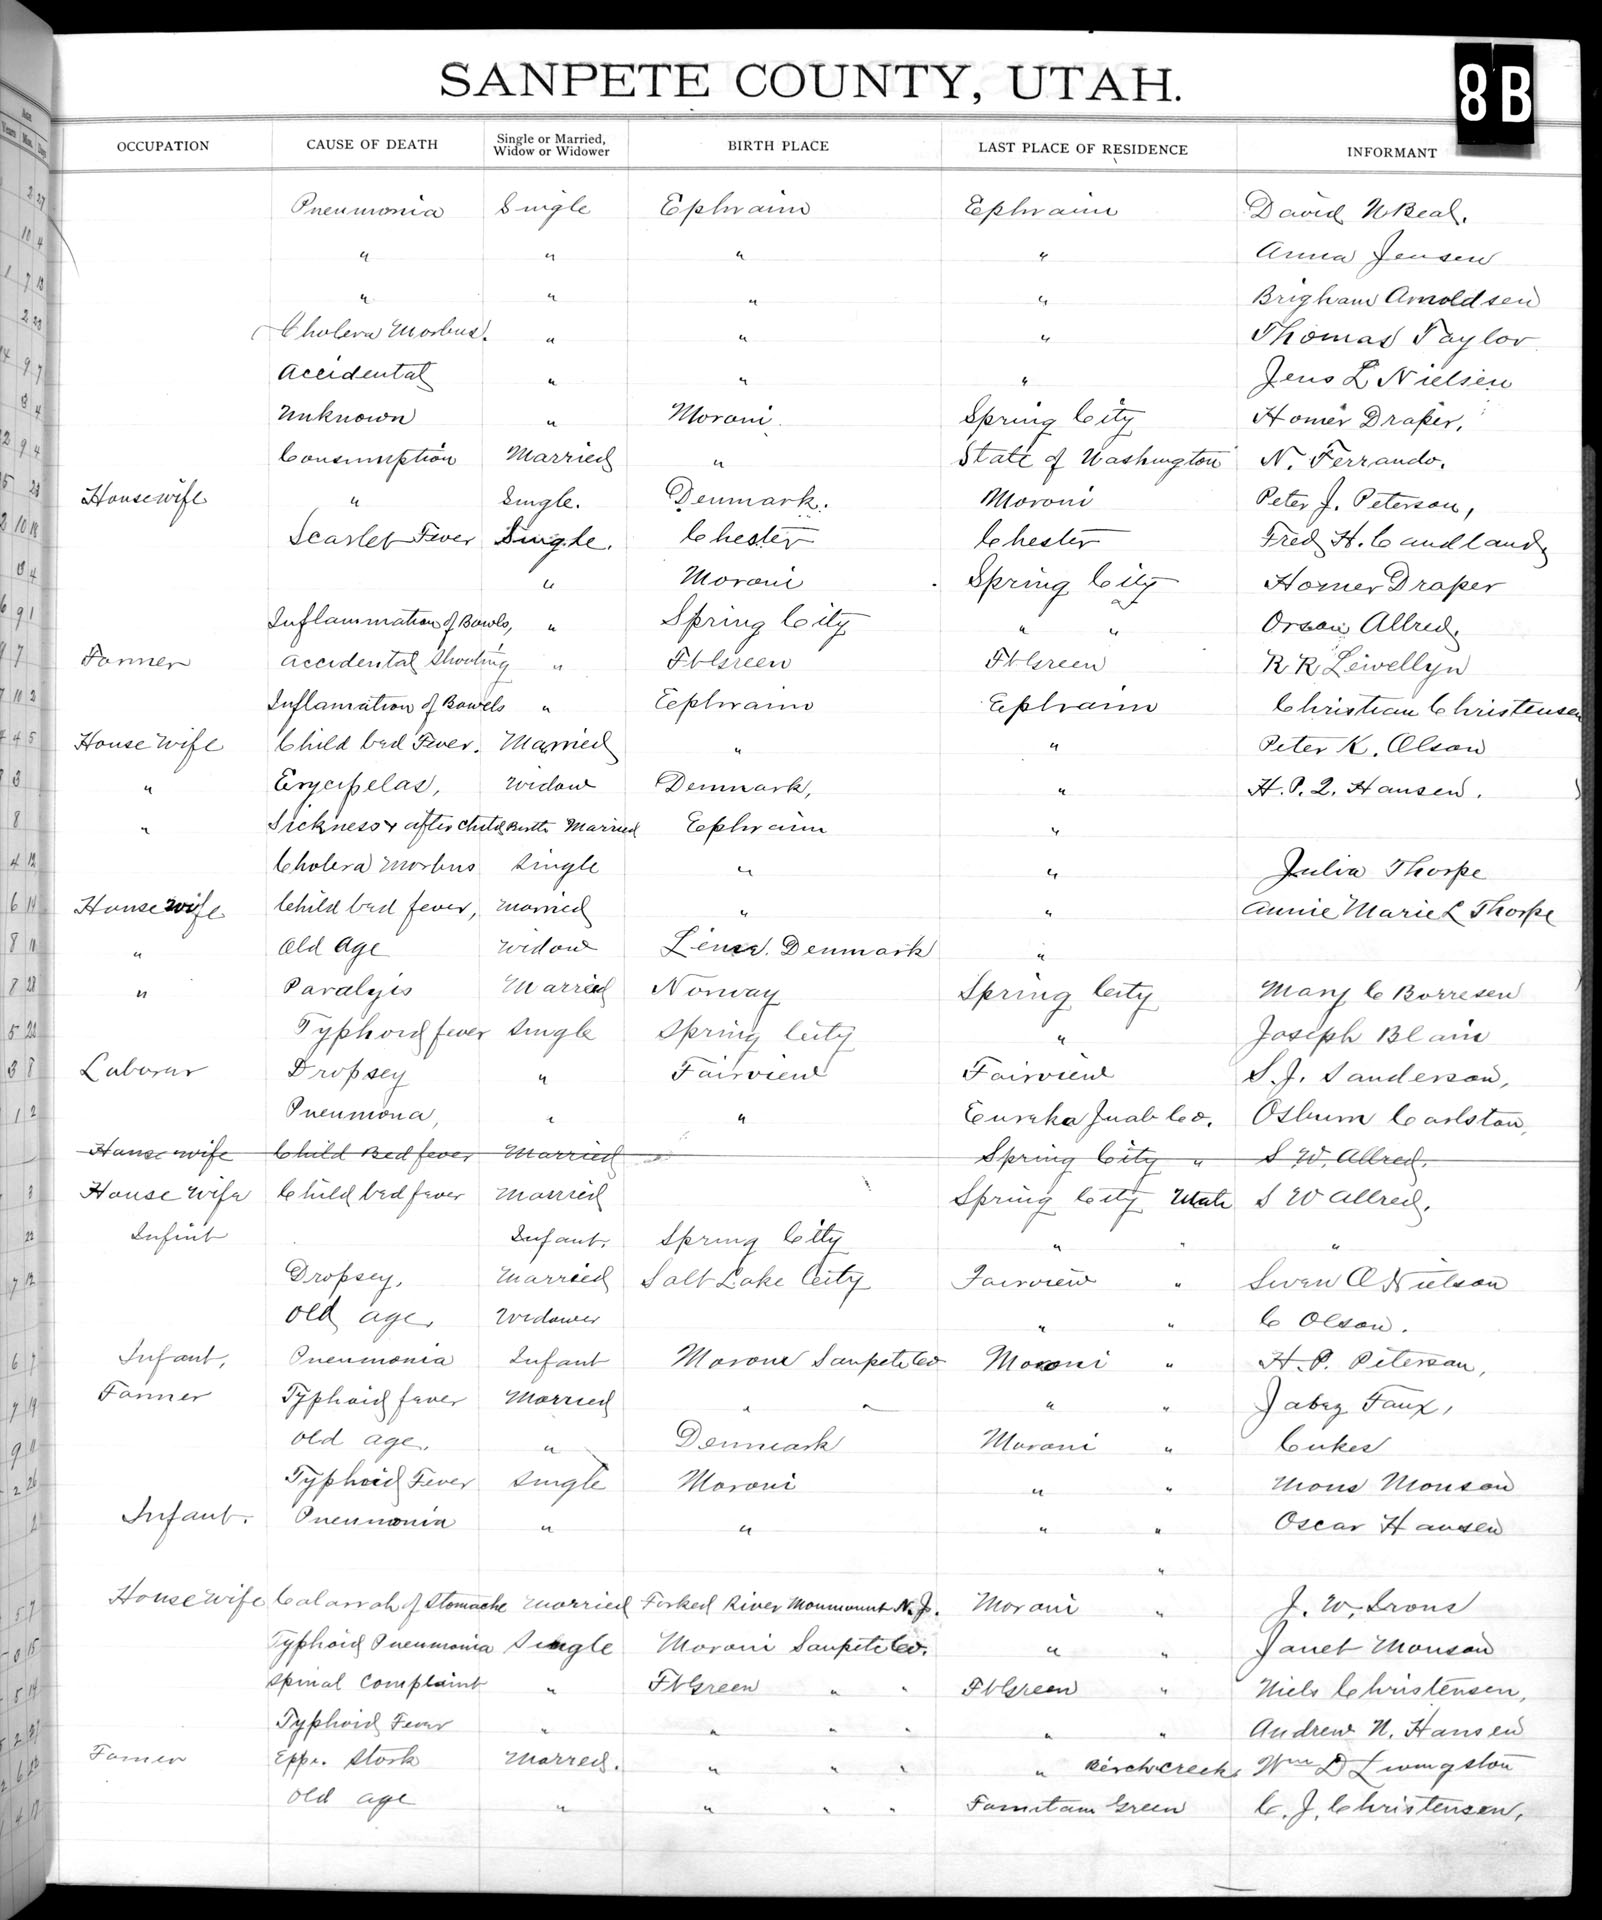 SANPETE COUNTY, UTAH.
8B
OCCUPATION CAUSE OF DEATH Single or Married, Widow or Widower BIRTH PLACE LAST PLACE OF RESIDENCE INFORMANT
Pneumonia Single Ephraim Ephraim David N Beal.
" " " " Anna Jensen
" " " " Brigham Arnoldsen
Cholera Morbus. " " " Thomas Taylor
Accidental " " " Jens L Nielsen
Unknown " Moroni Spring City Homer Draper.
Consumption Married " State of Washington N. Ferrando.
Housewife " Single. Denmark. Moroni Peter J. Peterson,
Scarlet Fever Single. Chester Chester Fred H. Candland,
" Moroni Spring City Homer Draper
Inflammation of Bowls, " Spring City " " Orson Allred.
Farmer Accidental Shooting " Ft Green Ft Green R R Lewellyn
Inflamation of Bowels " Ephraim Ephraim Christian Christensen
House Wife Child bed Fever. Married " " Peter K. Olson
" Erycipelas, Widow Denmark, " H. P. 2. Hansen.
" Sickness after Child Birth Married Ephraim "
Cholera Morbus Single " " Julia Thorpe
House wife Child bed fever, Married " " Annie Marie L Thorpe
" Old Age Widow Denmark "
" Paralyis Married Norway Spring City Mary C Borresen
Typhoid fever Single Spring City " Joseph Blain
Laborar Dropsey " Fairview Fairview S. J. Sanderson,
Pneumona, " " Eureka Juab Co. Osburn Carlston,
House wife Child Bed fever Married Spring City " S W. Allred.
House Wife Child bed fever Married Spring City Utah S W Allred.
Infint Infant. Spring City " " "
Dropsey, Married Salt Lake City Fairview " Swen O Nielson
Old age, Widower " " C Olson.
Infant, Pneumonia Infant Moroni Sanpete Co Moroni " H. P. Peterson,
Farmer Typhoid fever Married " " " " Jabez Faux,
Old age. " Denmark Moroni "
Typhoid Fever Single Moroni " " Mons Monson
Infant. Pneumonia " " " " Oscar Hansen
"
House Wife Catarrah of Stomache Married Forked River Monmount N. J. Moroni " J. W. Irons
Typhoid Pneumonia Single Moroni Sanpete Co. " " Janet Monson
Spinal Complaint " Ft Green " " Ft Green " Niels Christensen,
Typhoid Fever " " " " " " Andrew N. Hansen
Farmer Eppi. Stork Marred. " " " " Birch creek, Wm D Livingston
Old age " " " " Fountain Green C. J. Christensen,